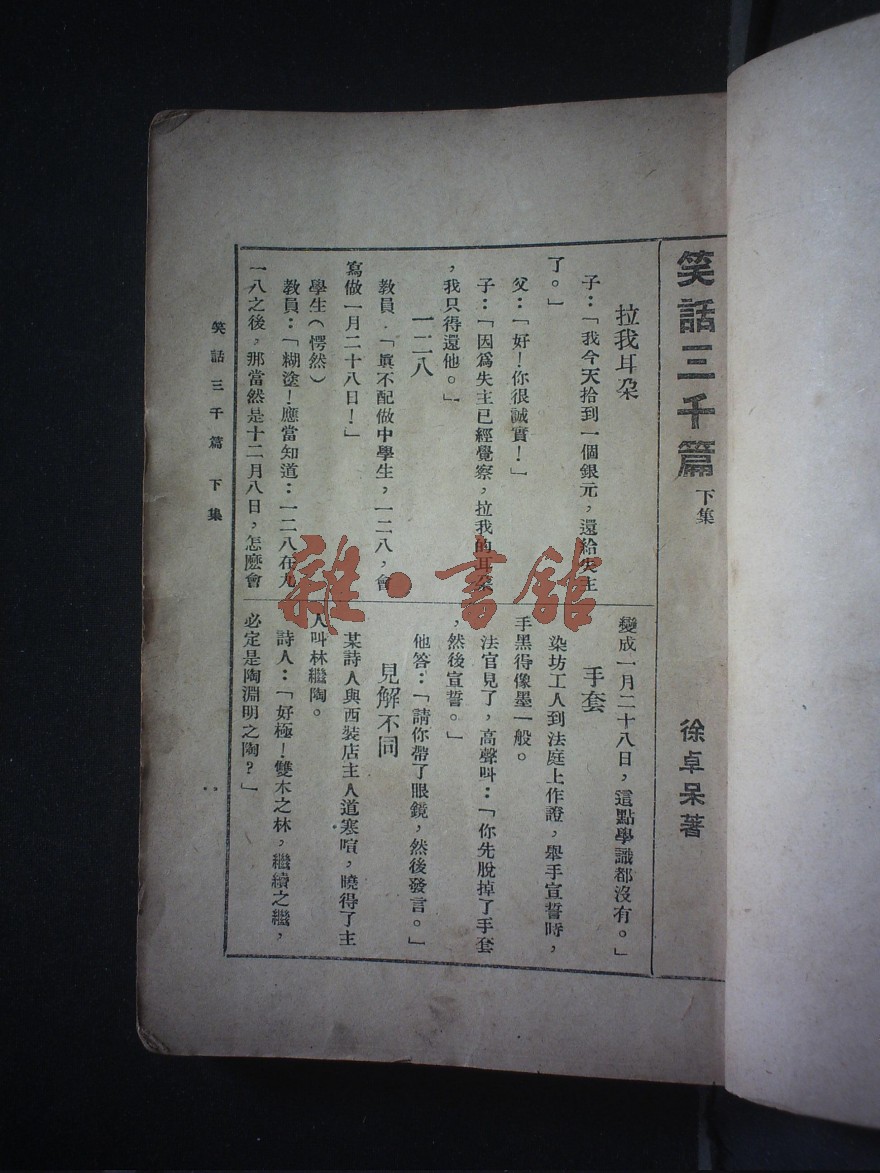 笑話三千篇 下集
徐卓呆著
拉我耳朶
子：「我今天拾到一個銀元，還給失主
了。」
父：「好！你很誠實！」
子：「因爲失主已經覺察，拉我的耳朶
，我只得還他。」
一二八
教員．「眞不配做中學生，一二八，會
寫做一月二十八日！」
學生（愕然）
教員：「糊塗！應當知道：一二八在九
一八之後。那當然是十二月八日，怎麽會
變成一月二十八日，這點學識都沒有。」
手套
染坊工人到法庭上作證，舉手宣誓時，
手黑得像墨一般。
法官見了，高聲叫：「你先脫掉了手套
，然後宣誓。」
他答：「請你帶了眼鏡，然後發言。」
見解不同
某詩人與西裝店主人道寒喧，曉得了主
人叫林繼陶。
詩人：「好極！雙木之林，繼續之繼，
必定是陶淵明之陶？」
笑話三千篇 下集
雜·書館